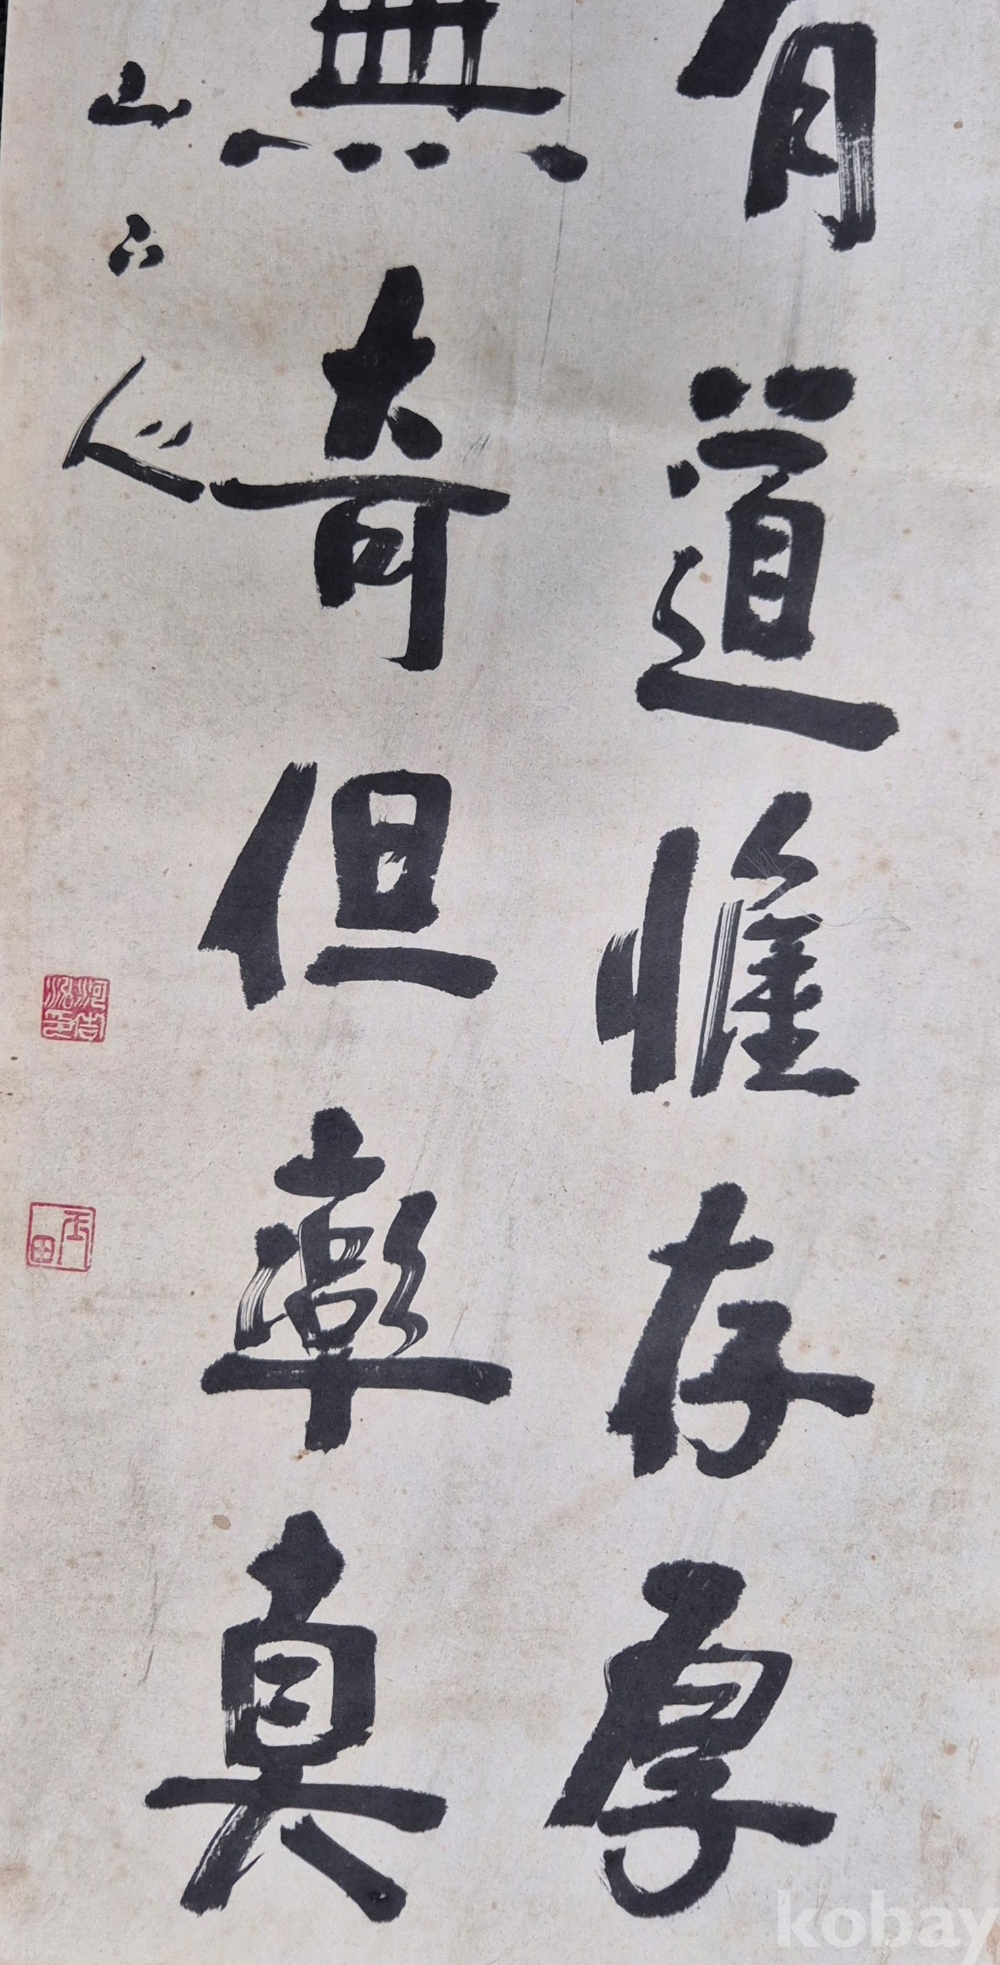 有道惟存厚
無奇但率真
山下人
kobay